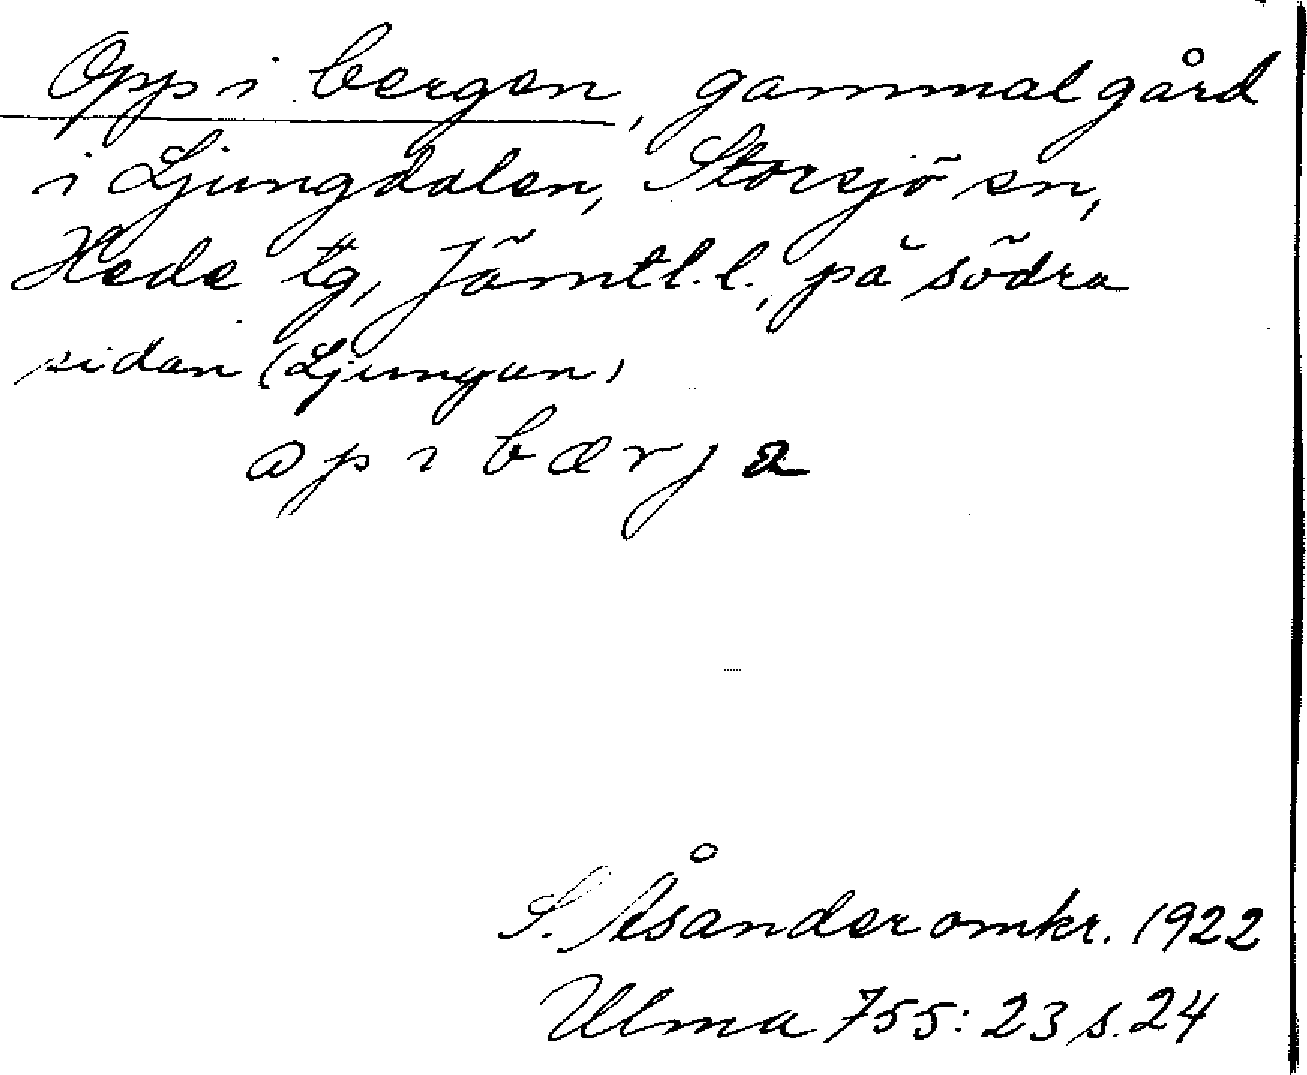 Opp i bergen, gammal gård
i Ljungdalen, Storsjö sn,
Hede tg, Jämtl. l., på södra
sidan (Ljungan)
op i bærja
S. Åsander omkr. 1922
Ulma 755:23 s. 24